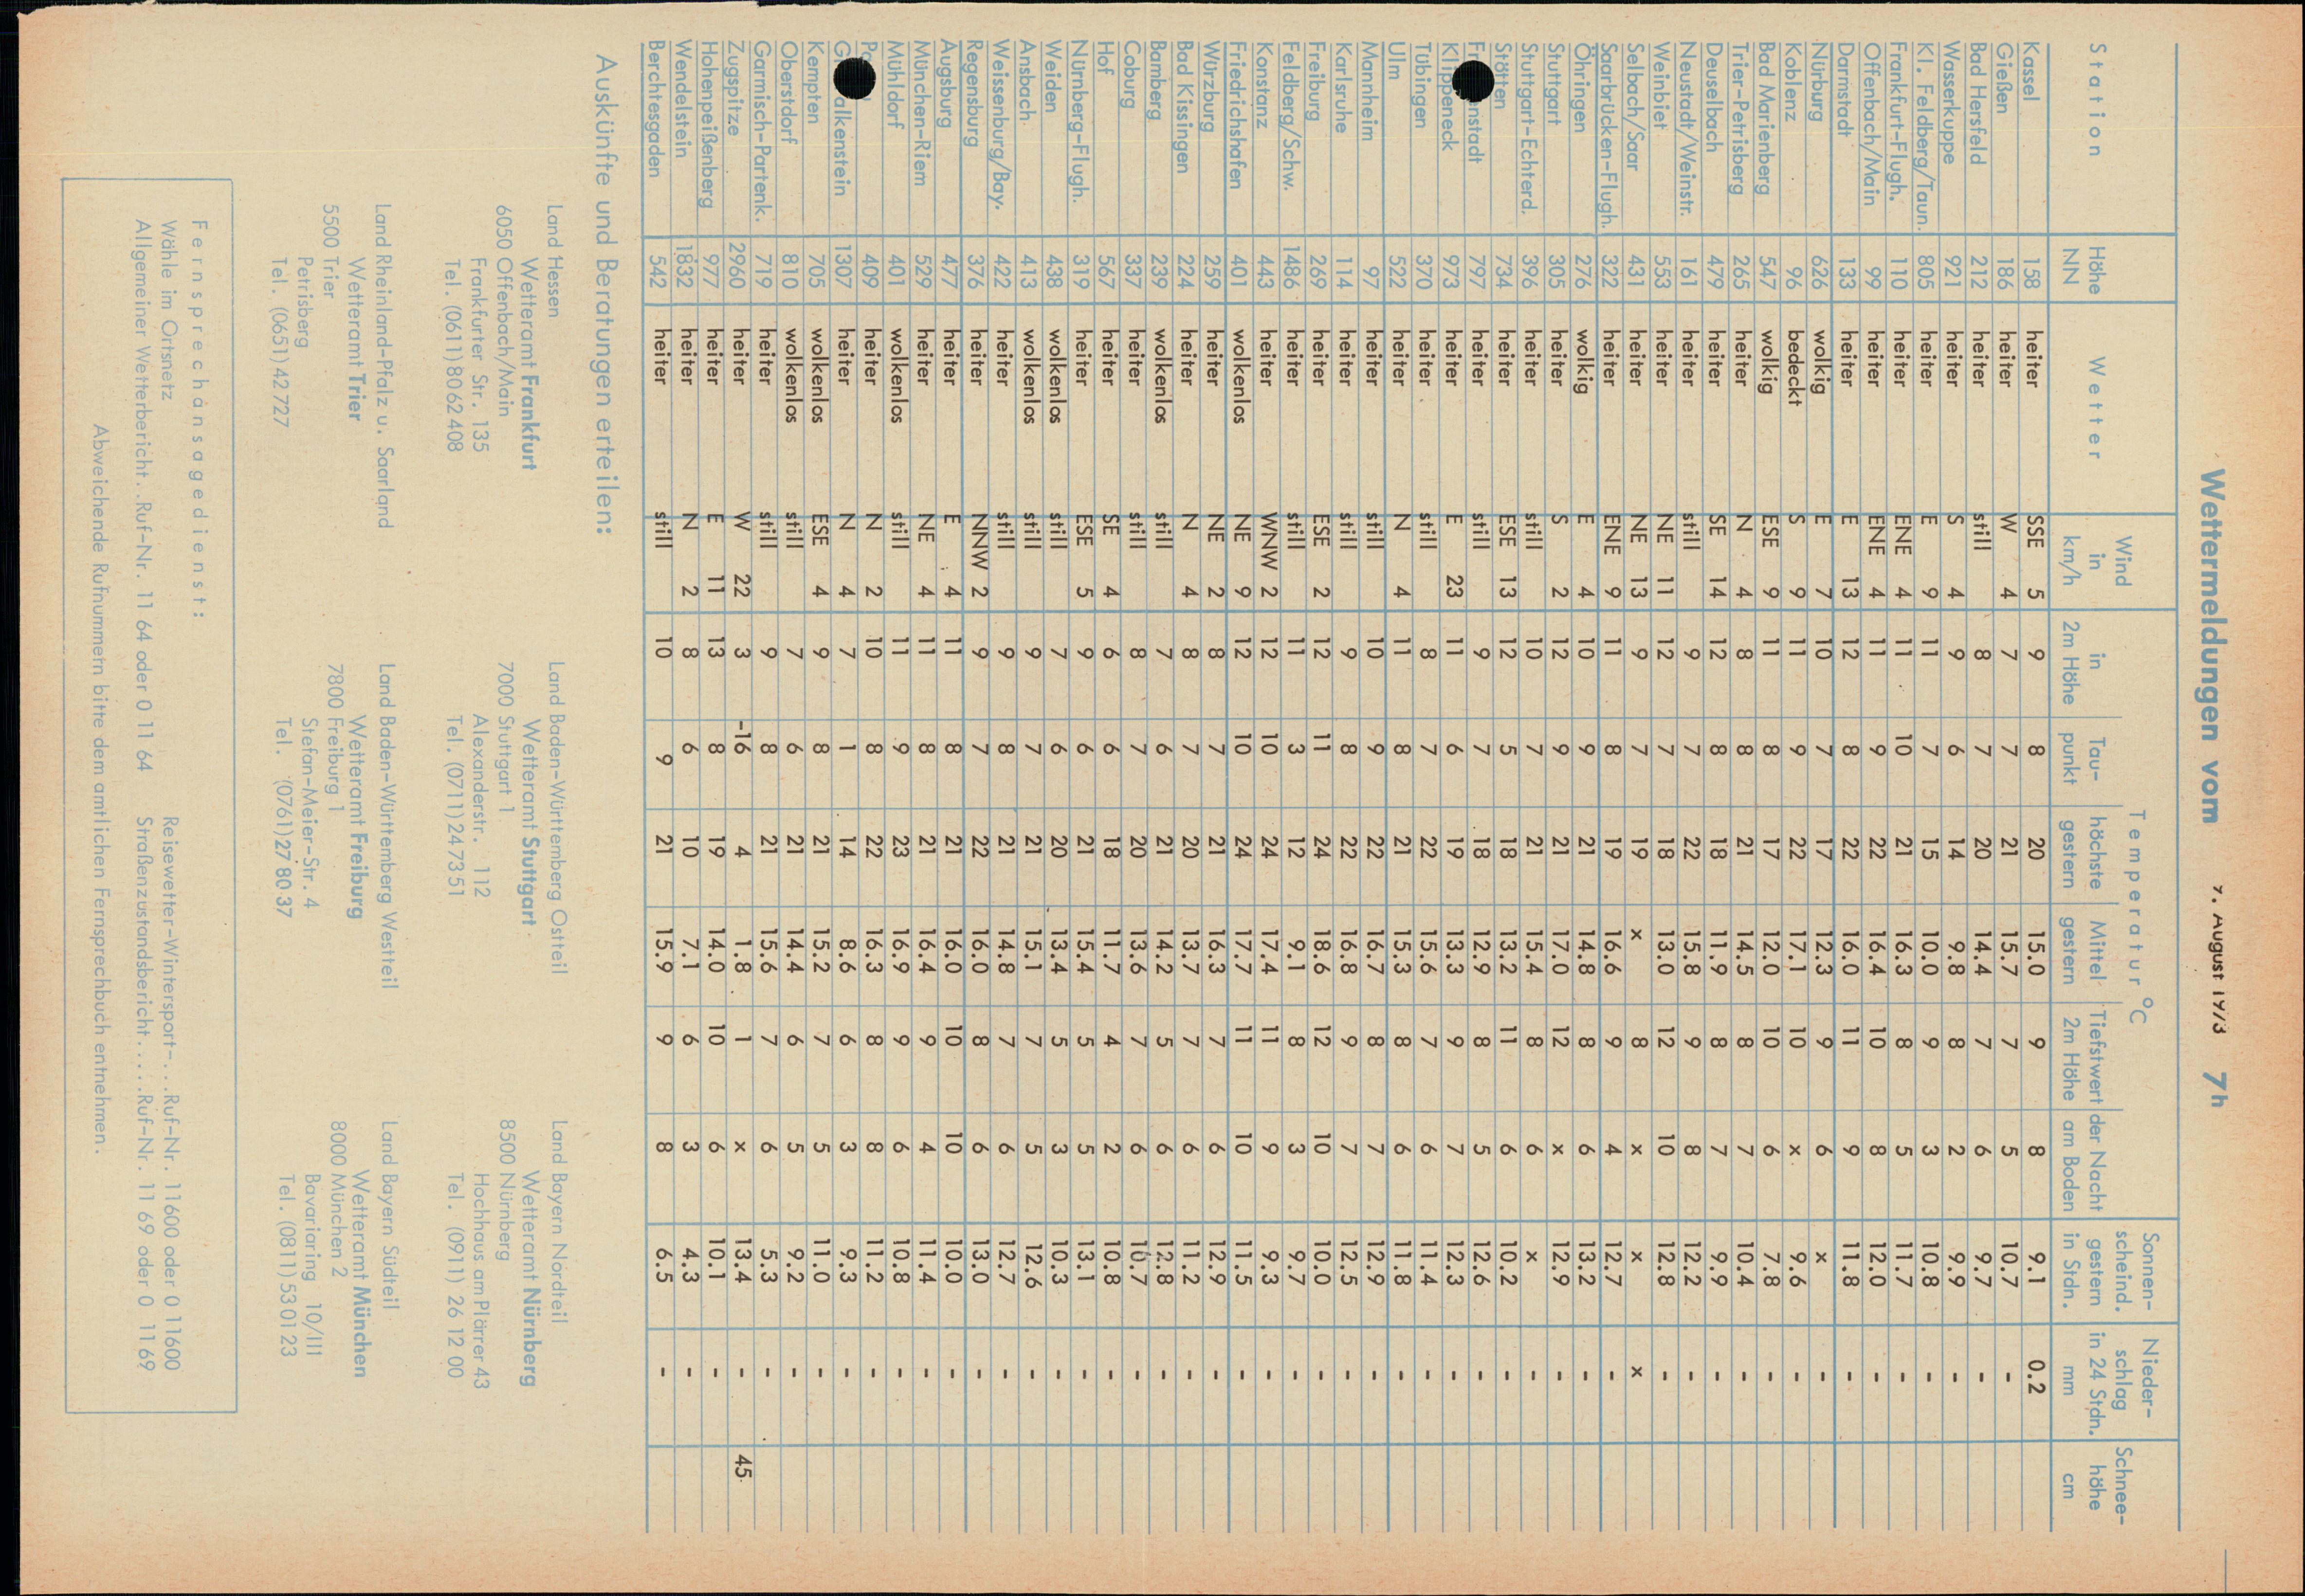 Wettermeldungen vom 7. August 1973 7h
Station Höhe NN Wetter Wind in km/h Temperatur °C in 2m Höhe Tau-punkt höchste gestern Mittel gestern Tiefstwert der Nacht 2m Höhe am Boden Sonnen-scheind. gestern in Stdn. Nieder-schlag in 24 Stdn. mm Schnee-höhe cm
Kassel 158 heiter SSE 5 9 8 20 15.0 9 8 9.1 0.2
Gießen 186 heiter W 4 7 7 21 15.7 7 5 10.7 -
Bad Hersfeld 212 heiter still 8 7 20 14.4 7 6 9.7 -
Wasserkuppe 921 heiter S 4 9 6 14 9.8 8 2 9.9 -
Kl. Feldberg/Taun. 805 heiter E 9 11 7 15 10.0 9 3 10.8 -
Frankfurt-Flugh. 110 heiter ENE 4 11 10 21 16.3 8 5 11.7 -
Offenbach/Main 99 heiter ENE 4 11 9 22 16.4 10 8 12.0 -
Darmstadt 133 heiter E 13 12 8 22 16.0 11 9 11.8 -
Nürburg 626 wolkig E 7 10 7 17 12.3 9 6 x -
Koblenz 96 bedeckt S 9 11 9 22 17.1 10 x 9.6 -
Bad Marienberg 547 wolkig ESE 9 11 8 17 12.0 10 6 7.8 -
Trier-Petrisberg 265 heiter N 4 8 8 21 14.5 8 7 10.4 -
Deuselbach 479 heiter SE 14 12 8 18 11.9 8 7 9.9 -
Neustadt/Weinstr. 161 heiter still 9 7 22 15.8 9 8 12.2 -
Weinbiet 553 heiter NE 11 12 7 18 13.0 12 10 12.8 -
Selbach/Saar 431 heiter NE 13 9 7 19 x 8 x x x
Saarbrücken-Flugh. 322 heiter ENE 9 11 8 19 16.6 9 4 12.7 -
Öhringen 276 wolkig E 4 10 9 21 14.8 8 6 13.2 -
Stuttgart 305 heiter S 2 12 9 21 17.0 12 x 12.9 -
Stuttgart-Echterd. 396 heiter still 10 7 21 15.4 8 6 x -
Stötten 734 heiter ESE 13 12 5 18 13.2 11 6 10.2 -
Fr nstadt 797 heiter still 9 7 18 12.9 8 5 12.6 -
Klippeneck 973 heiter E 23 11 6 19 13.3 9 7 12.3 -
Tübingen 370 heiter still 8 7 22 15.6 7 6 11.4 -
Ulm 522 heiter N 4 11 8 21 15.3 8 6 11.8 -
Mannheim 97 heiter still 10 9 22 16.7 8 7 12.9 -
Karlsruhe 114 heiter still 9 8 22 16.8 9 7 12.5 -
Freiburg 269 heiter ESE 2 12 11 24 18.6 12 10 10.0 -
Feldberg/Schw. 1486 heiter still 11 3 12 9.1 8 3 9.7 -
Konstanz 443 heiter WNW 2 12 10 24 17.4 11 9 9.3 -
Friedrichshafen 401 wolkenlos NE 9 12 10 24 17.7 11 10 11.5 -
Würzburg 259 heiter NE 2 8 7 21 16.3 7 6 12.9 -
Bad Kissingen 224 heiter N 4 8 7 20 13.7 7 6 11.2 -
Bamberg 239 wolkenlos still 7 6 21 14.2 5 6 12.8 -
Coburg 337 heiter still 8 7 20 13.6 7 6 10.7 -
Hof 567 heiter SE 4 6 6 18 11.7 4 2 10.8 -
Nürnberg-Flugh. 319 heiter ESE 5 9 6 21 15.4 5 5 13.1 -
Weiden 438 wolkenlos still 7 6 20 13.4 5 3 10.3 -
Ansbach 413 wolkenlos still 9 7 21 15.1 7 5 12.6 -
Weissenburg/Bay. 422 heiter still 9 8 21 14.8 7 6 12.7 -
Regensburg 376 heiter NNW 2 9 7 22 16.0 8 6 13.0 -
Augsburg 477 heiter E 4 11 8 21 16.0 10 10 10.0 -
München-Riem 529 heiter NE 4 11 8 21 16.4 9 4 11.4 -
Mühldorf 401 wolkenlos still 11 9 23 16.9 9 6 10.8 -
Pa 409 heiter N 2 10 8 22 16.3 8 8 11.2 -
G alkenstein 1307 heiter N 4 7 1 14 8.6 6 3 9.3 -
Kempten 705 wolkenlos ESE 4 9 8 21 15.2 7 5 11.0 -
Oberstdorf 810 wolkenlos still 7 6 21 14.4 6 5 9.2 -
Garmisch-Partenk. 719 heiter still 9 8 21 15.6 7 6 5.3 -
Zugspitze 2960 heiter W 22 3 -16 4 1.8 1 x 13.4 - 45
Hohenpeißenberg 977 heiter E 11 13 8 19 14.0 10 6 10.1 -
Wendelstein 1832 heiter N 2 8 6 10 7.1 6 3 4.3 -
Berchtesgaden 542 heiter still 10 9 21 15.9 9 8 6.5 -
Auskünfte und Beratungen erteilen:
Land Hessen
Wetteramt Frankfurt
6050 Offenbach/Main
Frankfurter Str. 135
Tel. (0611) 80 62 408
Land Baden-Württemberg Ostteil
Wetteramt Stuttgart
7000 Stuttgart 1
Alexanderstr. 112
Tel. (0711) 24 73 51
Land Bayern Nordteil
Wetteramt Nürnberg
8500 Nürnberg
Hochhaus am Plärrer 43
Tel. (0911) 26 12 00
Land Rheinland-Pfalz u. Saarland
Wetteramt Trier
5500 Trier
Petrisberg
Tel. (0651) 42 727
Land Baden-Württemberg Westteil
Wetteramt Freiburg
7800 Freiburg 1
Stefan-Meier-Str. 4
Tel. (0761) 27 80 37
Land Bayern Südteil
Wetteramt München
8000 München 2
Bavariaring 10/III
Tel. (0811) 53 01 23
Fernsprechansagedienst:
Wähle im Ortsnetz Reisewetter-Wintersport-...Ruf-Nr. 11600 oder 0 11600
Allgemeiner Wetterbericht..Ruf-Nr. 11 64 oder 0 11 64 Straßenzustandsbericht.....Ruf-Nr. 11 69 oder 0 11 69
Abweichende Rufnummern bitte dem amtlichen Fernsprechbuch entnehmen.